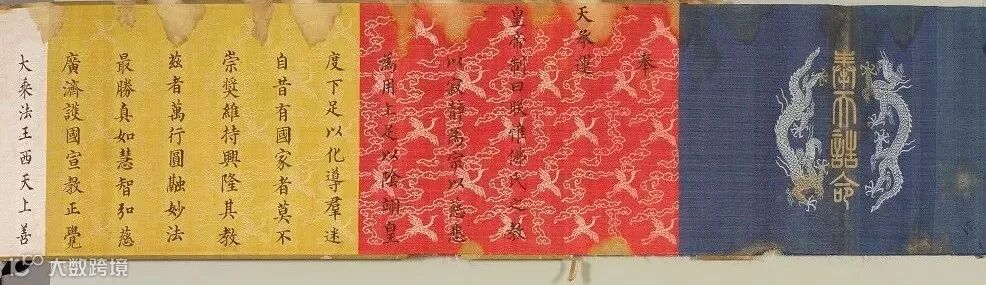 奉天誥命
奉
天承運
皇帝制曰朕惟佛氏之教
以寂靜為宗以慈悲
為用上足以陰翊皇
度下足以化導羣迷
自昔有國家者莫不
崇奬維持興隆其教
茲者萬行圓融妙法
最勝真如慧智弘慈
廣濟護國宣教正覺
大乘法王西天上善
大数跨境